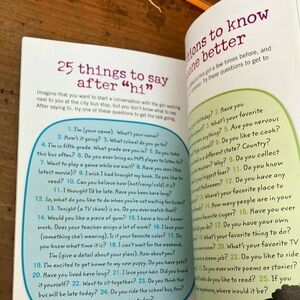 25 things to say
after "hi"
Imagine that you want to start a conversation with the girl waiting
next to you at the city bus stop, but you don't know what to say.
After saying hi, try one of these questions to get the talk going:
1. I'm (your name). What's your name?
2. How's it going? 3. What school do you go to?
4. I'm in fifth grade. What grade are you in? 5. Do you take
this bus often? 6. Do you ever bring an MP3 player to listen to?
7. Want to play a game while we wait? 8. Have you seen
9. I wish I had brought my book. Do you like to
read? 10. Can you believe how (hot/rainy/cold) it is?
11. I thought I'd be late. Have you been here long?
12. So, what do you like to do when you're not waiting for the bus?
13. Tonight (a TV show) is on. Do you ever watch that?
14. Would you like a piece of gum? 15. I have a ton of home-
work. Does your teacher assign a lot of work? 16. I love your
(something she's wearing). Is it your favorite color? 17. Do you
know what time it is? 18. I can't wait for the weekend.
I'm (give a detail about your plan). How about you?
19. I'm excited to get home to my new puppy. Do you have pets?
20. Have you lived here long? 21. I love your hair. Did you
braid it yourself? 22. Want to sit together? 23. Do you think the
bus will be late today? 24. Do you ride the school bus, too?
ions to know
one better
this girl a few times before, and
Try these questions to get to
2. Have you
What's your favorite
5. Are you nervous
6. Do you like to cook?
a different state? Country?
9. Do you collect
11. Do you know
fear? 12. How
13. Have you been to any
your favorite place to
16. How many people are in your
favorite singer? 18. Have you
19. Have you ever won
What do you have
20. What's your favorite TV
a dream job? 22. Do you like to ride
Do you ever write poems or stories?
Do you like to read? 25. If